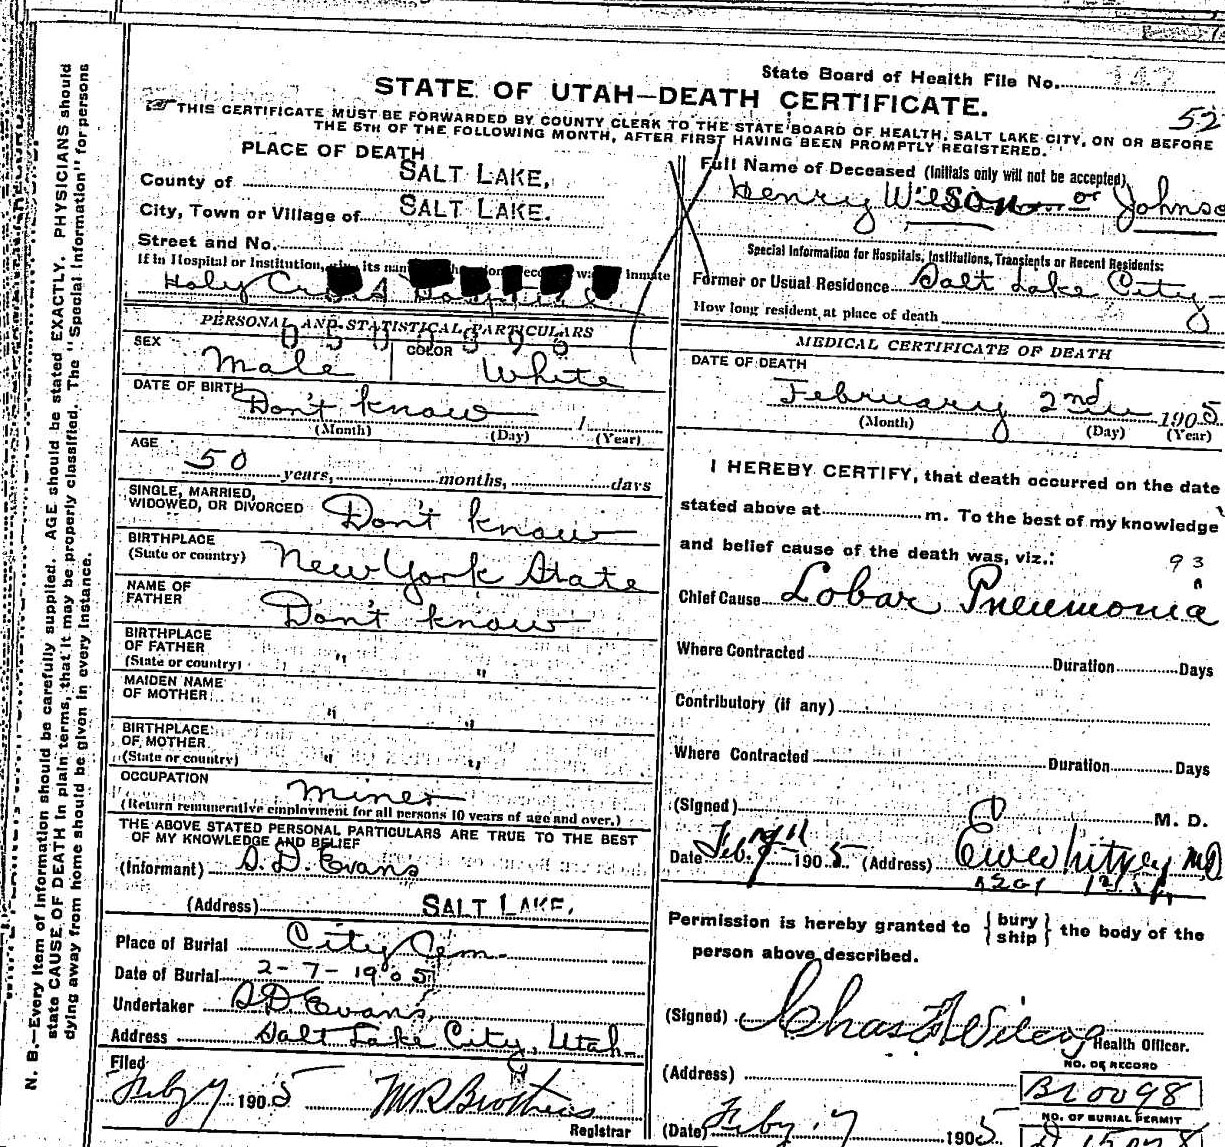 State Board of Health File No.
STATE OF UTAH—DEATH CERTIFICATE.
52
THIS CERTIFICATE MUST BE FORWARDED BY COUNTY CLERK TO THE STATE BOARD OF HEALTH, SALT LAKE CITY, ON OR BEFORE
THE 5TH OF THE FOLLOWING MONTH, AFTER FIRST HAVING BEEN PROMPTLY REGISTERED.
N. B.—Every item of Information should be carefully supplied. AGE should be stated EXACTLY. PHYSICIANS should
state CAUSE OF DEATH in plain terms, that it may be properly classified. The "Special Information" for persons
dying away from home should be given in every instance.
PLACE OF DEATH
County of SALT LAKE,
City, Town or Village of SALT LAKE.
Street and No.
If in Hospital or Institution, its Inmate
Holy Cross Hospital
PERSONAL AND STATISTICAL PARTICULARS
0500396
SEX Male COLOR White
DATE OF BIRTH Don't know 1
(Month) (Day) (Year)
AGE
50 years, months, days
SINGLE, MARRIED,
WIDOWED, OR DIVORCED Don't know
BIRTHPLACE
(State or country) New York State
NAME OF
FATHER Don't know
BIRTHPLACE
OF FATHER
(State or country) " "
MAIDEN NAME
OF MOTHER " "
BIRTHPLACE
OF MOTHER
(State or country) " "
OCCUPATION Miner
(Return remunerative employment for all persons 10 years of age and over.)
THE ABOVE STATED PERSONAL PARTICULARS ARE TRUE TO THE BEST
OF MY KNOWLEDGE AND BELIEF
(Informant) S. D. Evans
(Address) SALT LAKE.
Place of Burial City Cem.
Date of Burial 2-7-1905
Undertaker S D. Evans,
Address Salt Lake City, Utah
Filed
Feby 7 1905
Registrar
Full Name of Deceased (Initials only will not be accepted)
Henry Wilson or Johnso
Special Information for Hospitals, Institutions, Transients or Recent Residents:
Former or Usual Residence Salt Lake City
How long resident at place of death
MEDICAL CERTIFICATE OF DEATH
DATE OF DEATH
February 2nd 1905
(Month) (Day) (Year)
I HEREBY CERTIFY, that death occurred on the date
stated above at m. To the best of my knowledge
and belief cause of the death was, viz.: 93
Chief Cause Lobar Pneumonia
Where Contracted Duration Days
Contributory (if any)
Where Contracted Duration Days
(Signed) M. D.
Date Feb. 1905 (Address)
Permission is hereby granted to { bury ship } the body of the
person above described.
(Signed) Chas Wilcox
Health Officer.
(Address)
NO. OF RECORD
B10098
NO. OF BURIAL PERMIT
(Date) Feby 7 1905